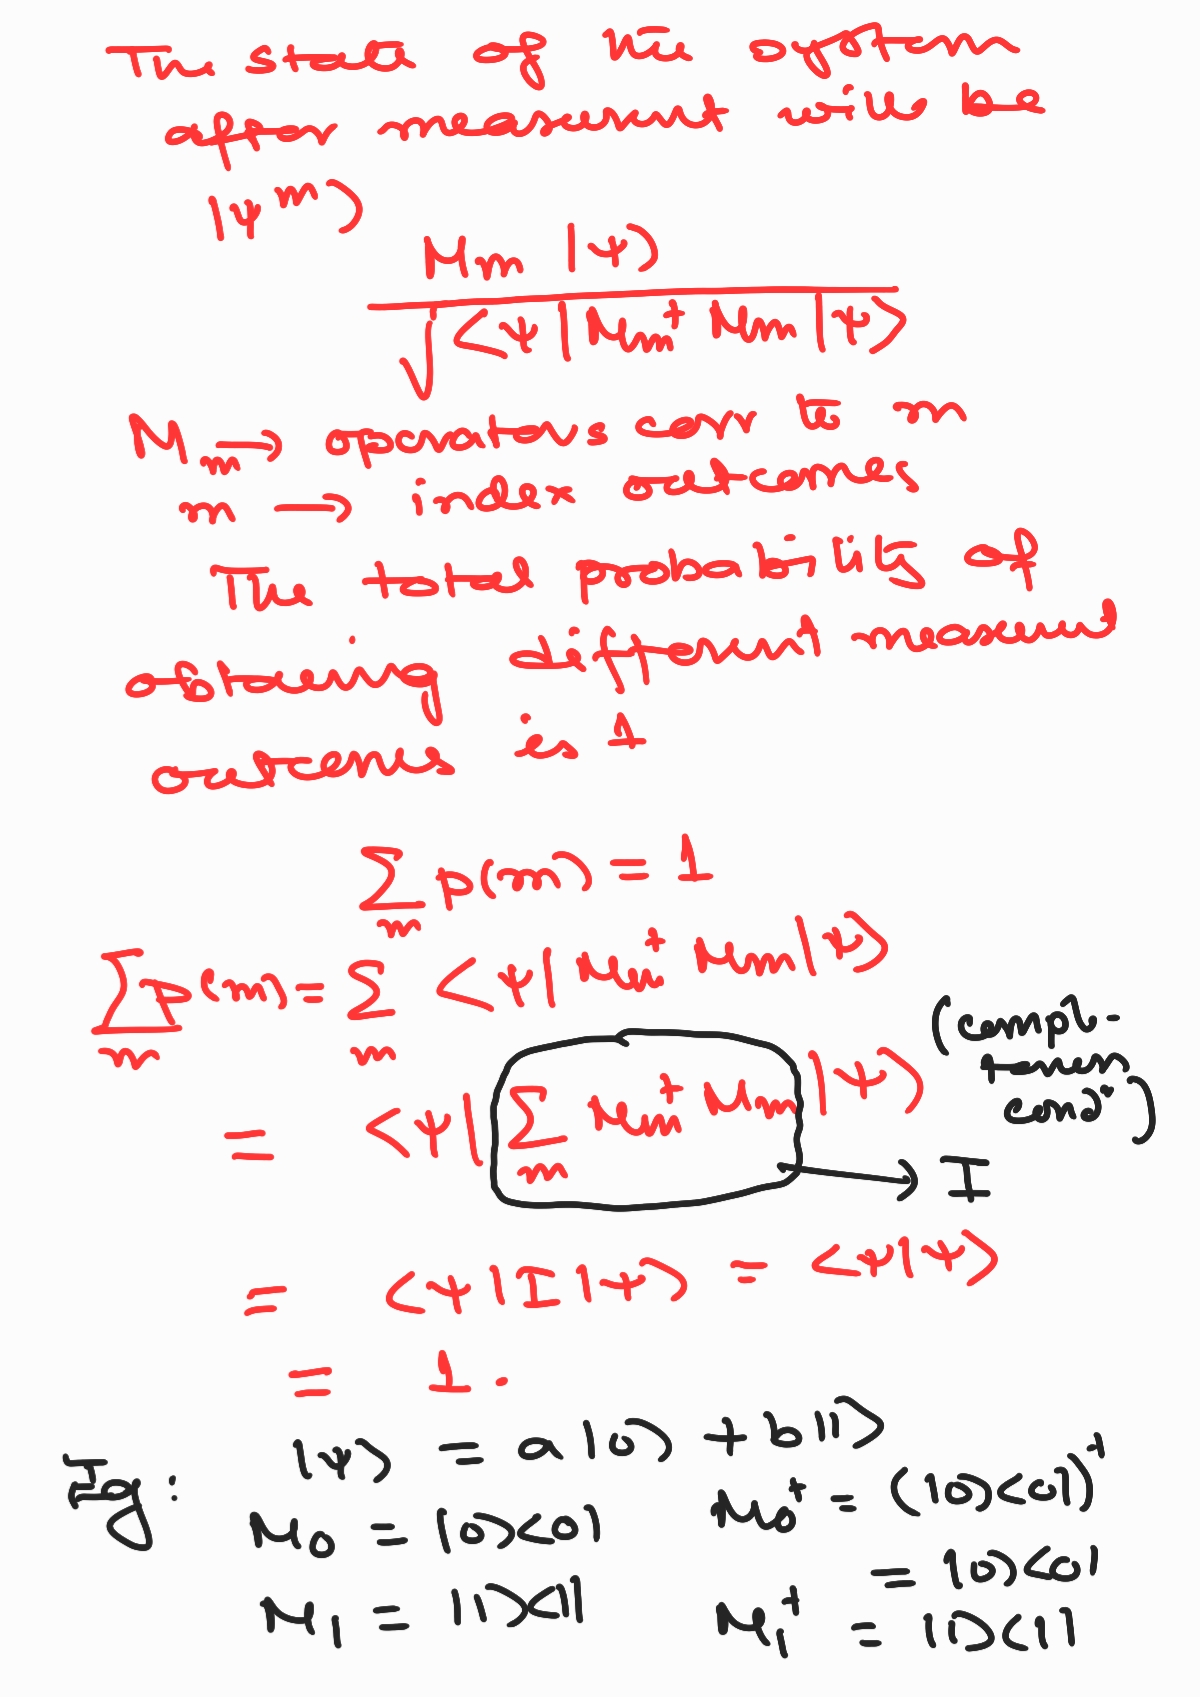 The state of the system
after measurement will be
|ψ^m⟩
M_m |ψ⟩
√⟨ψ| M_m† M_m |ψ⟩
M_m → operators corr to m
m → index outcomes
The total probability of
obtaining different measurement
outcomes is 1
Σ_m p(m) = 1
Σ_m p(m) = Σ_m ⟨ψ| M_m† M_m |ψ⟩
= ⟨ψ| Σ_m M_m† M_m |ψ⟩ (complteness condn)
→ I
= ⟨ψ|I|ψ⟩ = ⟨ψ|ψ⟩
= 1.
Eg: |ψ⟩ = a|0⟩ + b|1⟩
M_0 = |0⟩⟨0| M_0† = (|0⟩⟨0|)†
= |0⟩⟨0|
M_1 = |1⟩⟨1| M_1† = |1⟩⟨1|